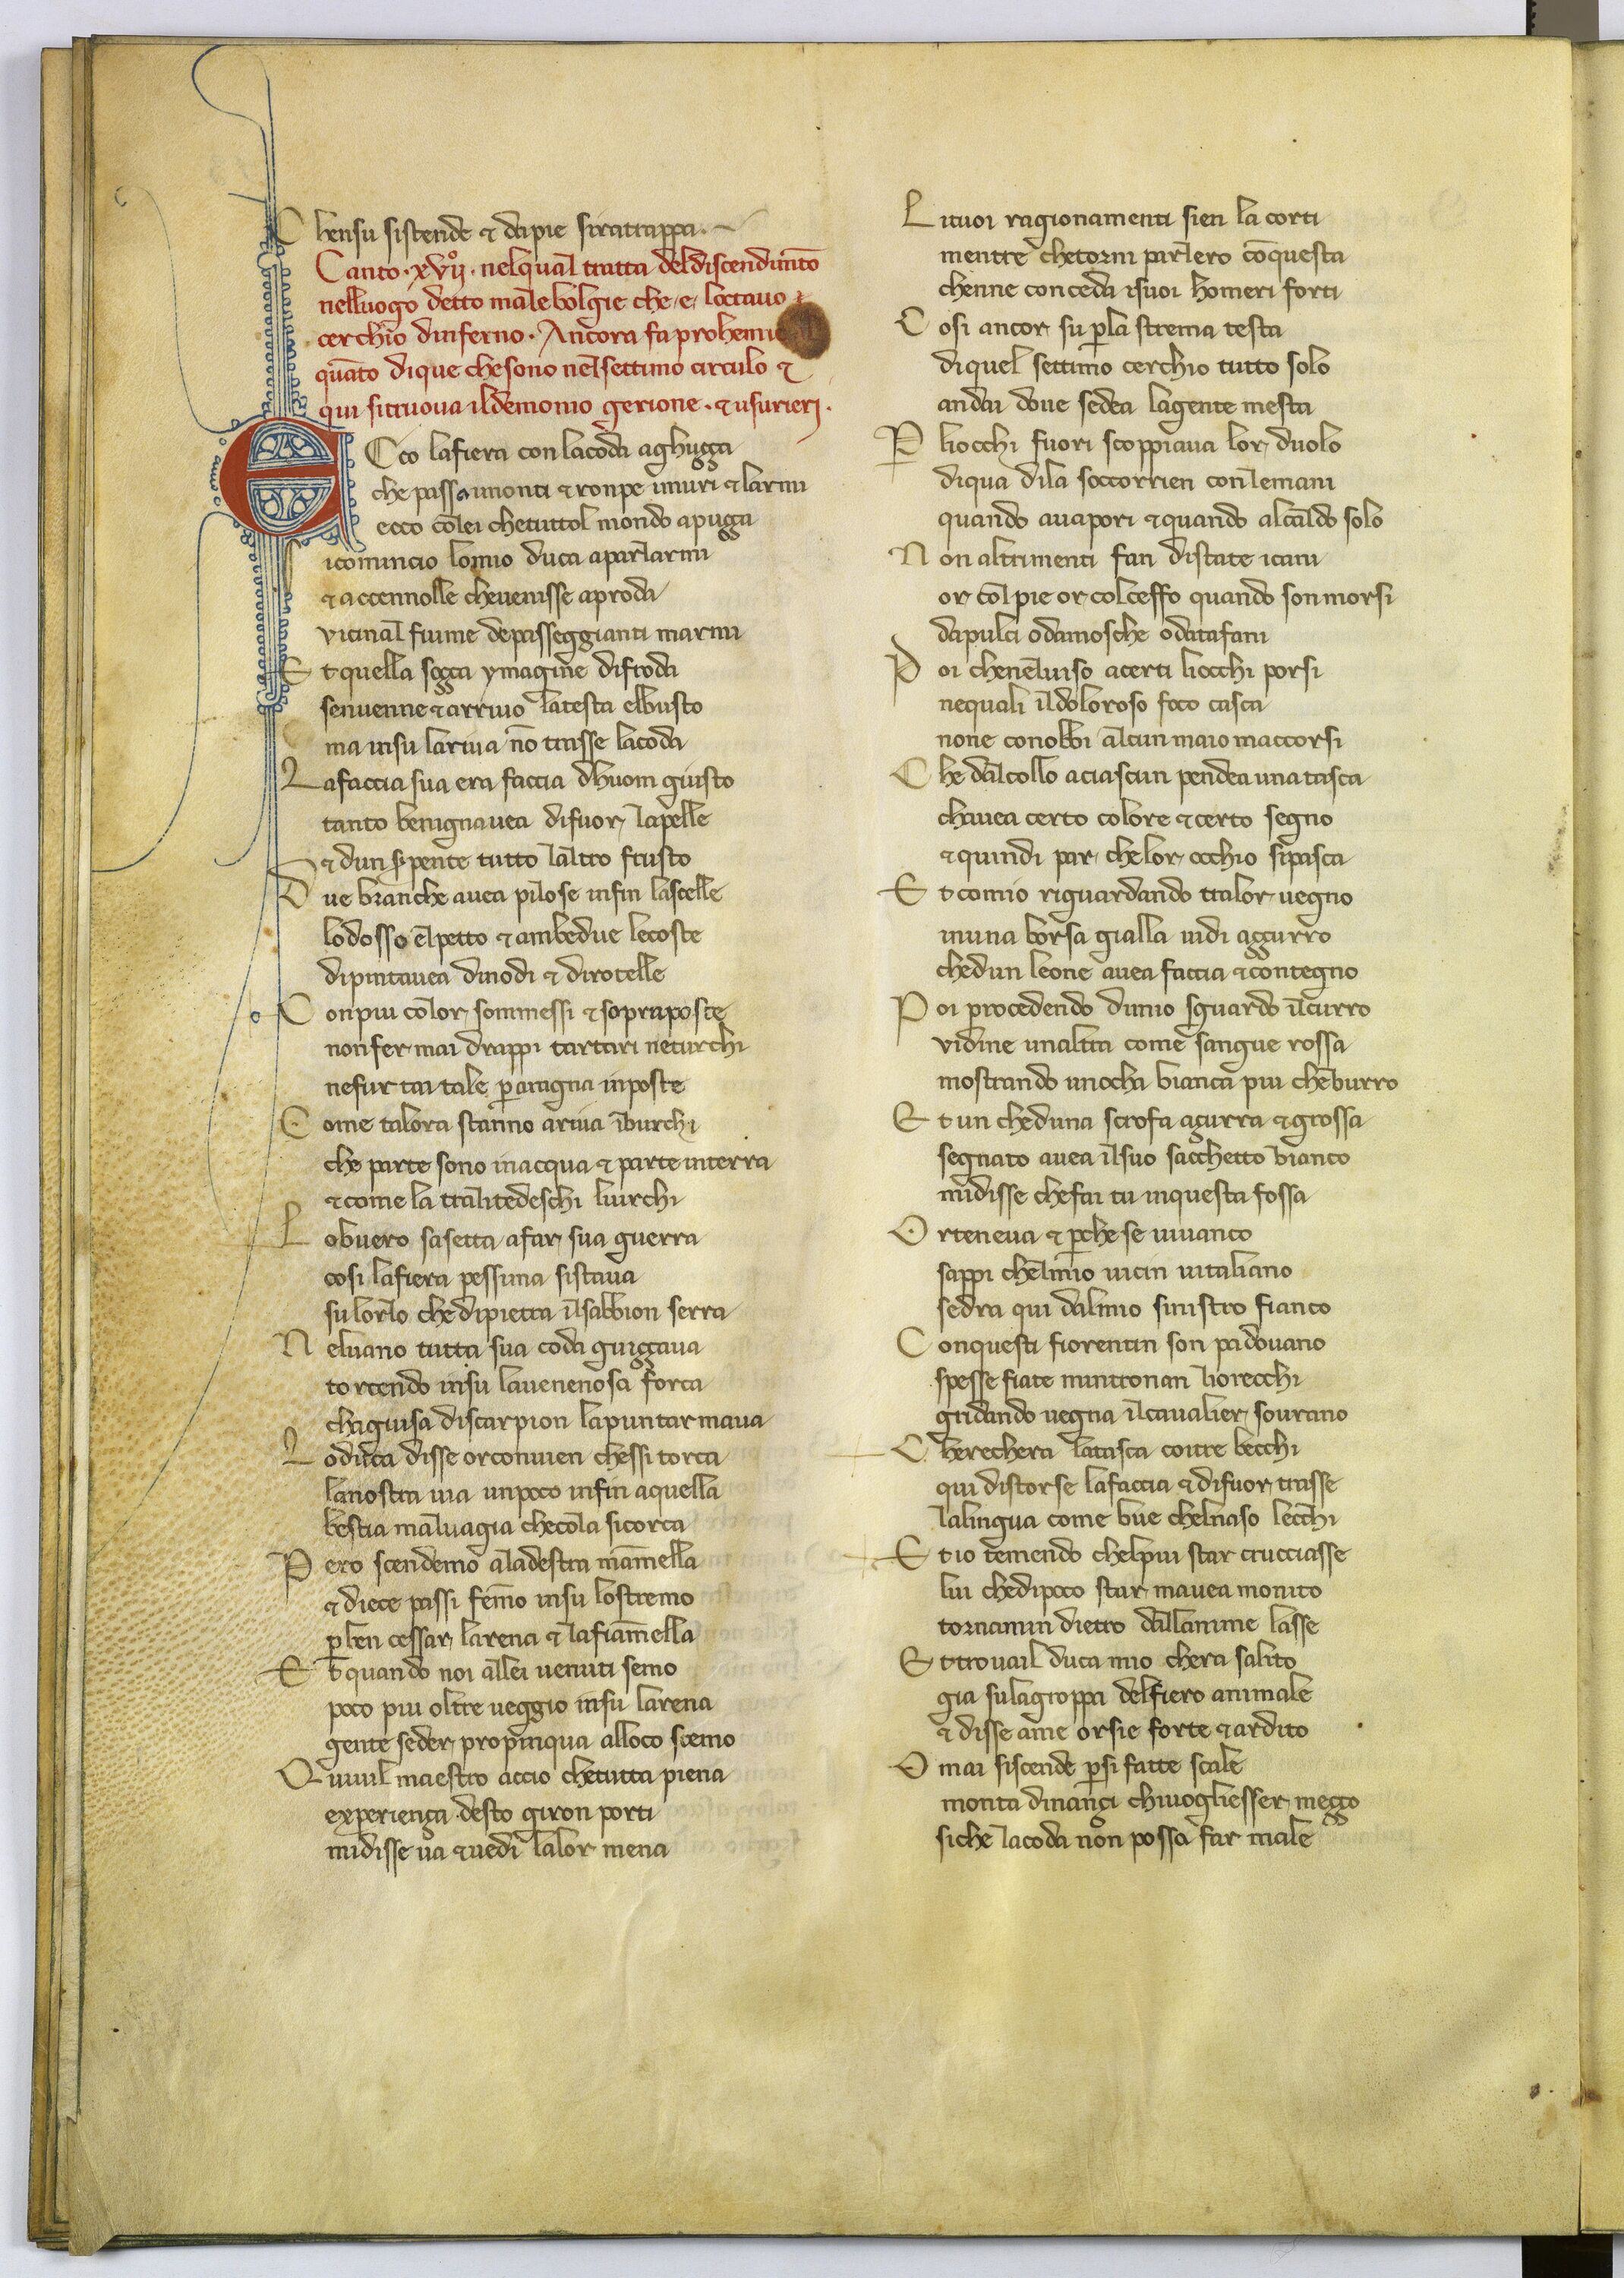 Chensu sistende & dapie sirattrappa.
Canto .xvij°. nelqual tratta deldiscendimēto
nelluogo detto malebolgie che .e. loctauo
cerchio dinferno. Anchora fa prohemi
quāto dique chesono nelsettimo circulo &
qui sitruoua ildemonio gerione. & usurieri.
ECco lafiera conlacoda aghuçça
che passa imonti & ronpe imuri & larmi
ecco colei chetuttol mondo apuçça
Sicomincio lomio duca aparlarmi
& accennolle chevenisse aproda
vicinal fiume depasseggianti marmi
Et quella soçça ymagine difroda
senuenne & arriuo latesta elbusto
ma insu lariua nō trasse lacoda
Lafaccia sua era faccia dhuom giusto
tanto benignauea difuor lapelle
& dun s͛pente tutto laltro frusto
Due branche auea pilose infin lascelle
lodosso elpetto & ambedue lecoste
dipintauea dinodi & dirotelle
Conpiu color sommessi & sopraposte
nonfer mai drappi tartari neturchi
nefur tai tele p̱ aragna inposte
Come talora stanno ariua iburchi
che parte sono inacqua & parte interra
& come la tralitedeschi lurchi
Lobuero sasetta afar sua guerra
cosi lafiera pessima sistaua
su lorlo che dipietra ilsabbion serra
Neluano tutta sua coda guiççaua
torcendo insu lauenenosa forca
chaguisa discarpion lapuntarmaua
Loduca disse orconuien chessi torca
lanostra uia unpoco infin aquella
bestia maluagia checola sicorca
Pero scendemo aladestra mamella
& diece passi femo insu lostremo
p̱ ben cessar larena & lafiamella
Et quando noi allei uenuti semo
poco piu oltre ueggio insu larena
gente seder propinqua alloco scemo
Quiuil maestro accio chetutta piena
experiença desto giron porti
midisse ua & uedi lalor mena
Lituoi ragionamenti sien la corti
mentre chetorni parlero cōquesta
chenne conceda isuoi homeri forti
Cosi ancor su p̱la strema testa
diquel settimo cerchio tutto solo
andai doue sedea lagente mesta
Pliocchi fuori scoppiaua lor duolo
diqua dila soccorrien conlemani
quando auapori & quando alcaldo solo
Non altrimenti fan distate icani
or col pie or colceffo quando sonmorsi
dapulci odamosche odatafani
Poi chenelviso acerti liocchi porsi
nequali ildoloroso foco casca
none conobbi alcun maio maccorsi
Che dalcollo aciascun pendea una tasca
chauea certo colore & certo segno
& quindi par chelor occhio sipasca
Et comio riguardando tralor uegno
inuna borsa gialla uidi aççurro
chedun leone auea faccia & contegno
Poi procedendo dimio sguardo ilcurro
vidine unaltra come sangue rossa
mostrando unocha bianca piu cheburro
Et un cheduna scrofa açurra & grossa
segnato auea ilsuo sacchetto bianco
midisse chefai tu inquesta fossa
Orteneua & p̱che se uiuanco
sappi chelmio uicin uitaliano
sedra qui dalmio sinistro fianco
Conquesti fiorentin son padouano
spesse fiate mintronan liorecchi
gridando uegna ilcaualier sourano
Cherechera latasca contre becchi
qui distorse lafaccia & difuor trasse
lalingua come bue chelnaso lecchi
Et io temendo chelpiu star crucciasse
lui chedipoco star mauea monito
tornamin dietro dallanime lasse
Et trouail duca mio chera salito
gia sulagroppa delfiero animale
& disse ame orsie forte & ardito
Omai siscende p̱si fatte scale
monta dinançi chiuogliesser meçço
siche lacoda non possa far male